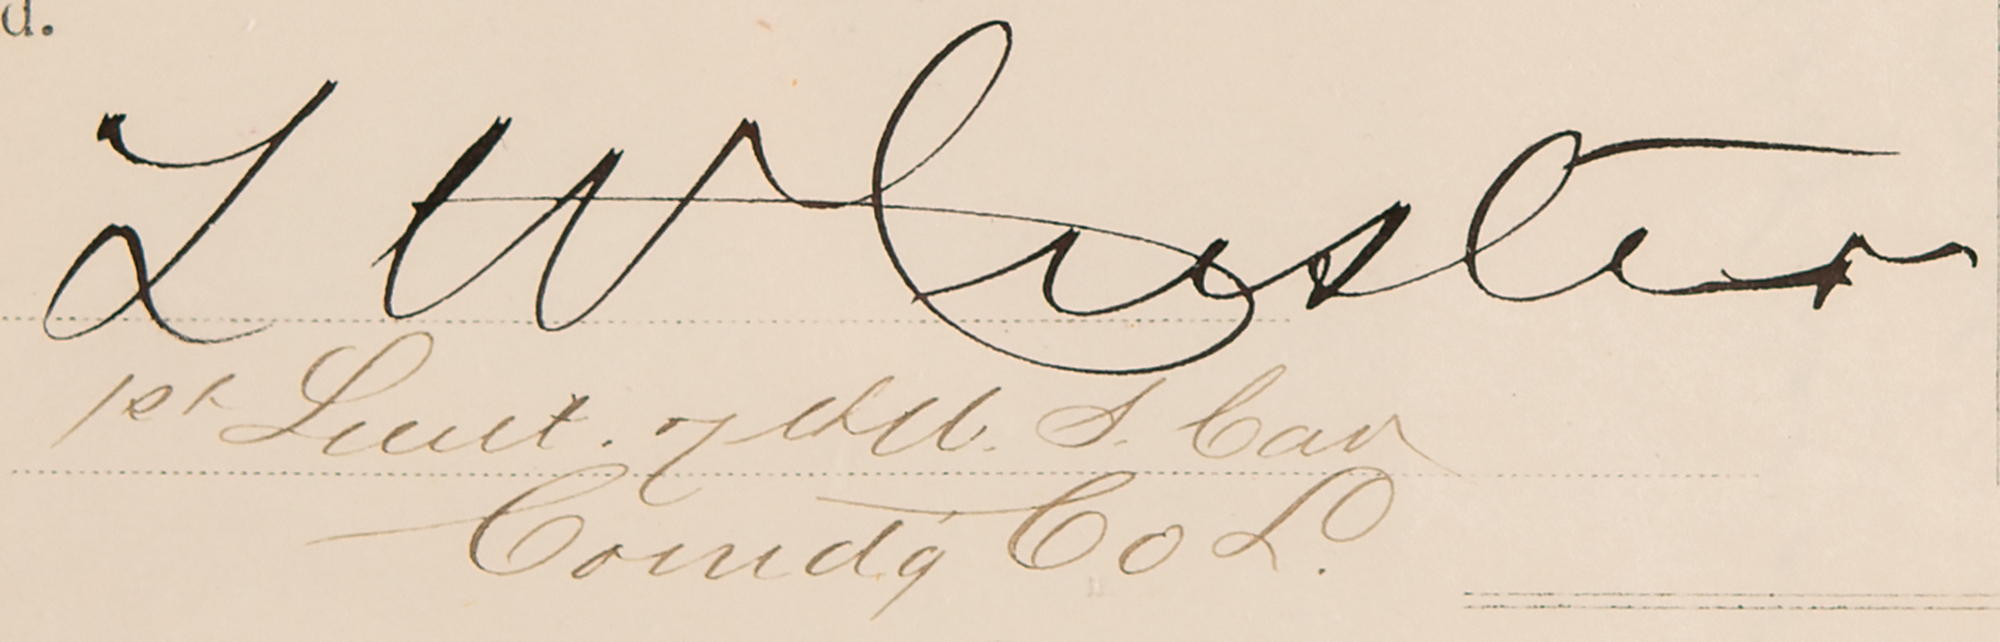 d.
T W Custer
1st Lieut. 7th U. S. Cav
Comd'g Co L.